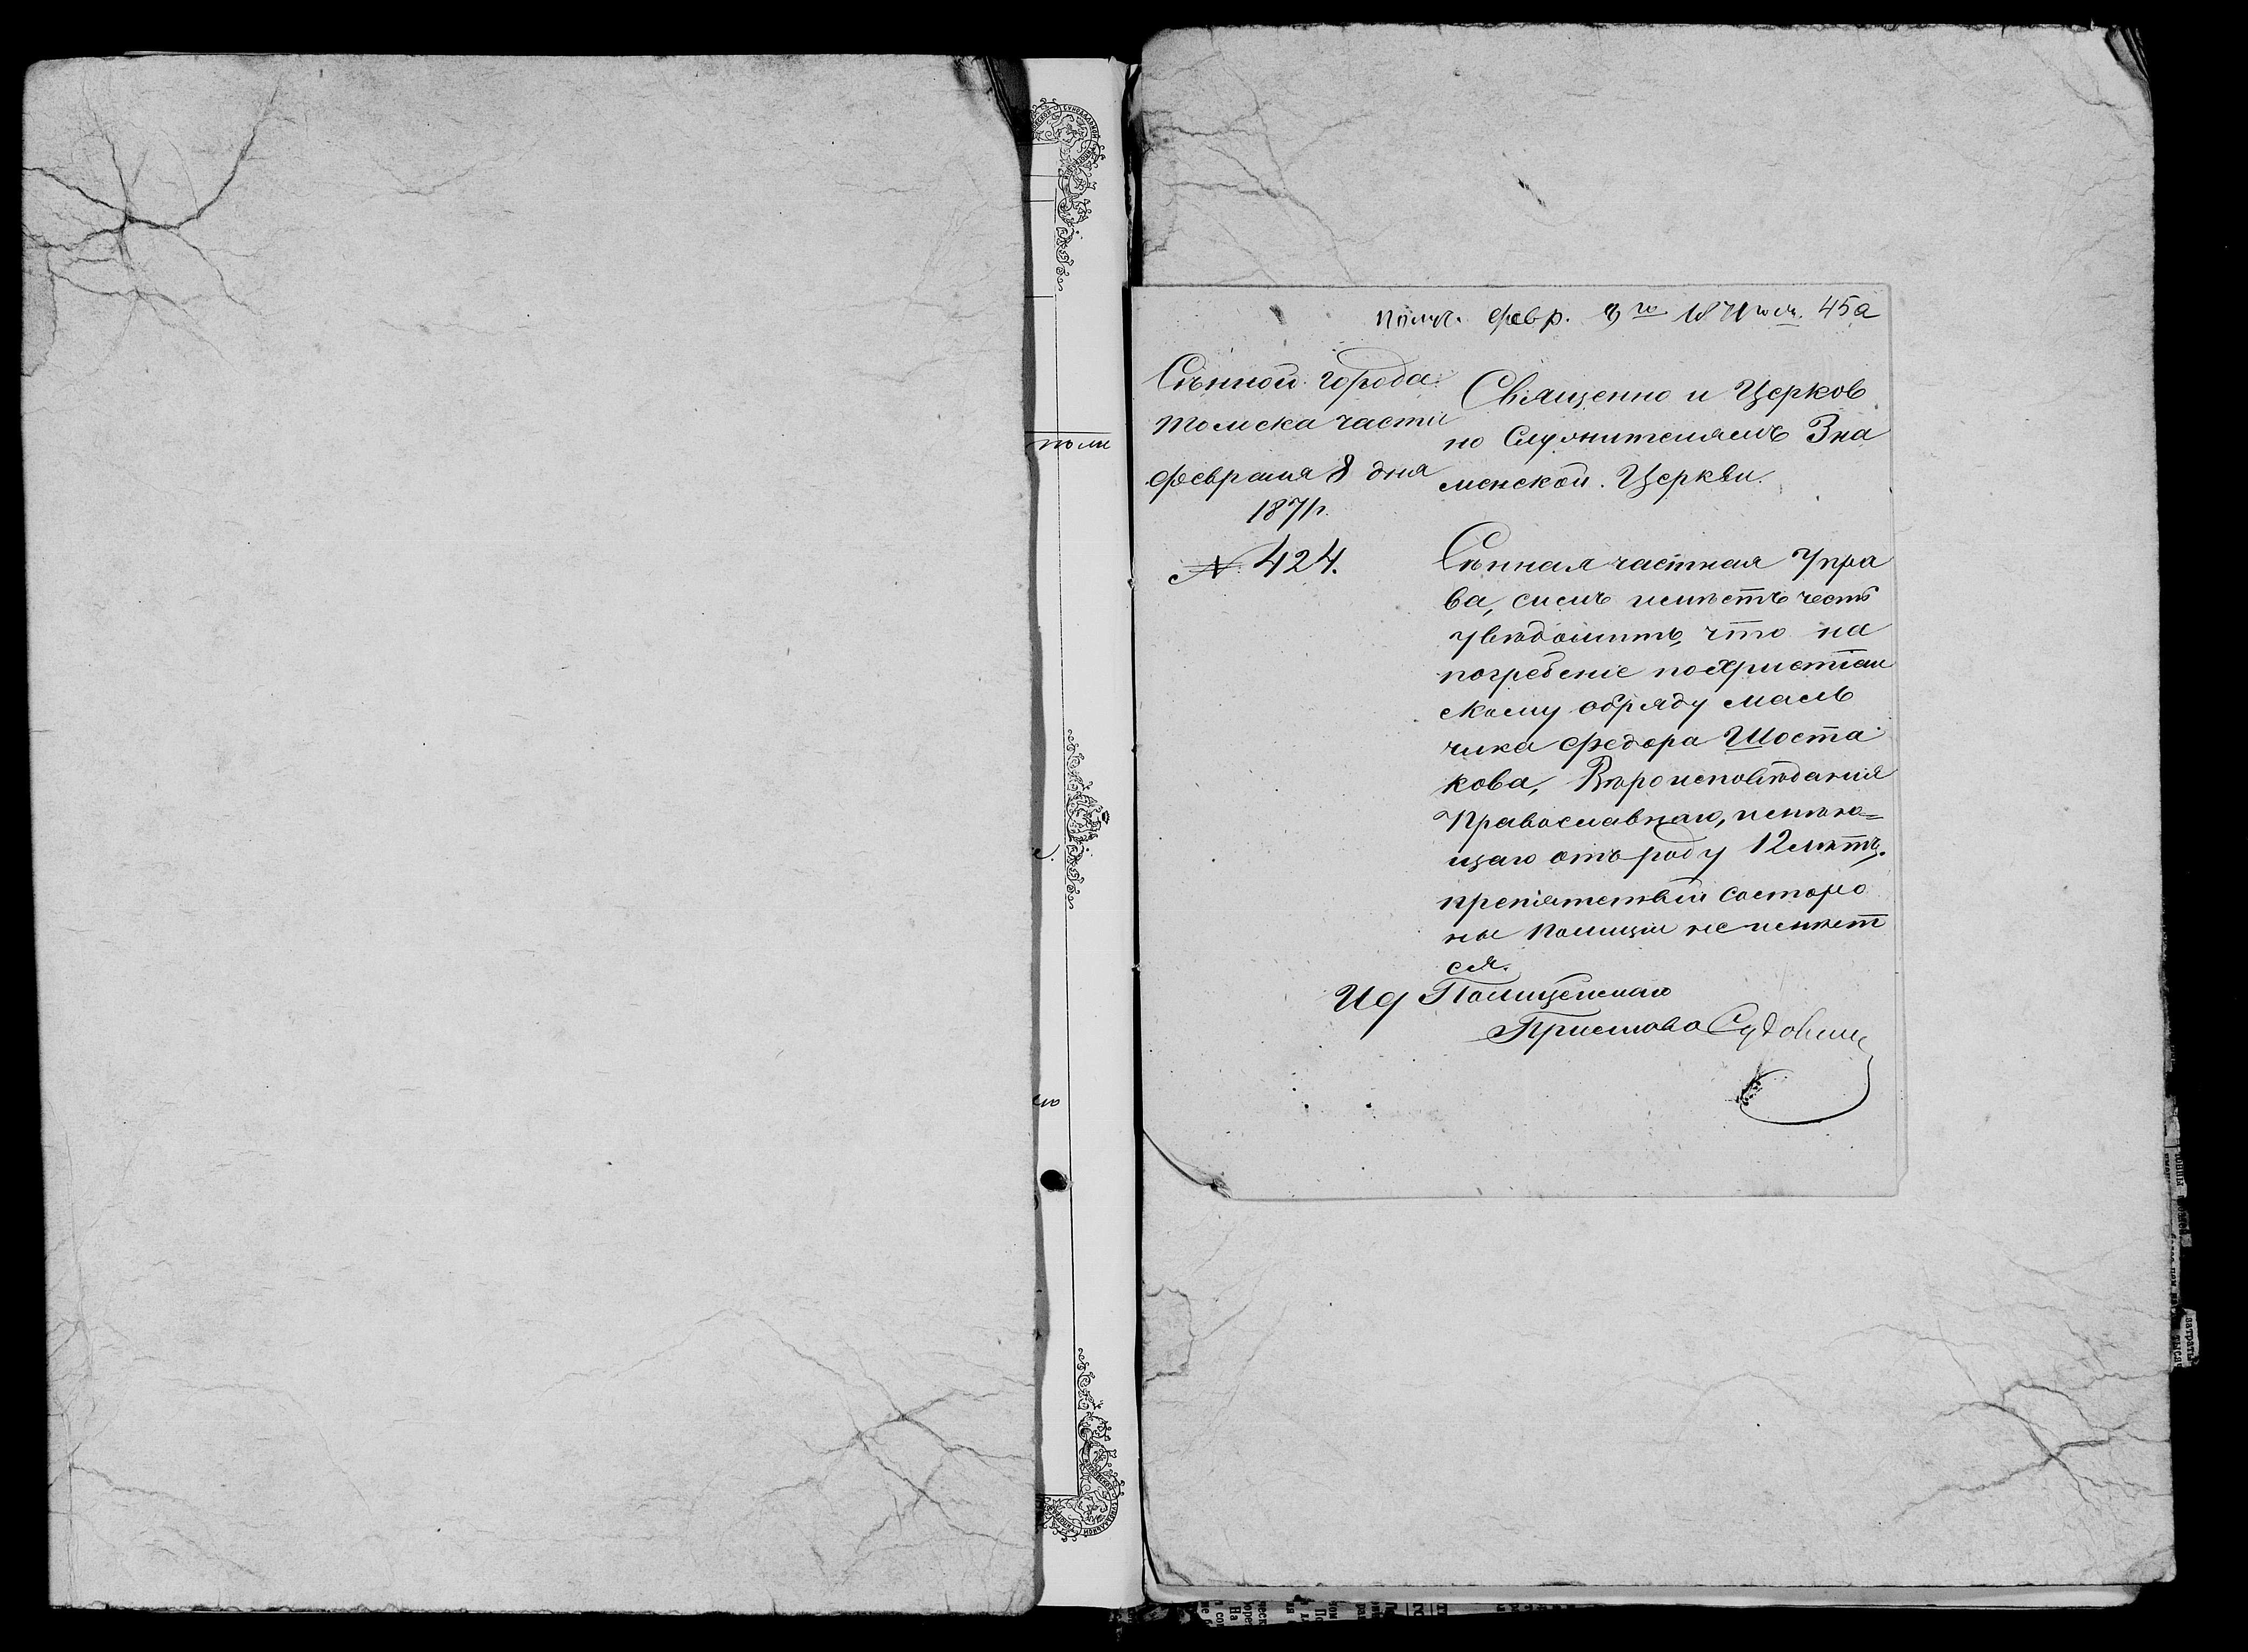 Получ. февр. 8го 1871 года. 45а
Сѣнной города
Томска части
февраля 8 дня
1871 г.
№ 424.
Священно и Церков
но Служителямъ Зна
менской Церкви.
Сѣнная частная Упра
ва, симъ имѣетъ честь
увѣдомить, что на
погребеніе по Христіан
скому обряду маль
чика Федора Шоста
кова, Вѣроисповѣданія
Православнаго, имѣю=
щаго отъ роду 12 лѣтъ.
препятствій состоро
ны Полиціи не имѣет
ся.
ИД Полицейскаго
Пристава